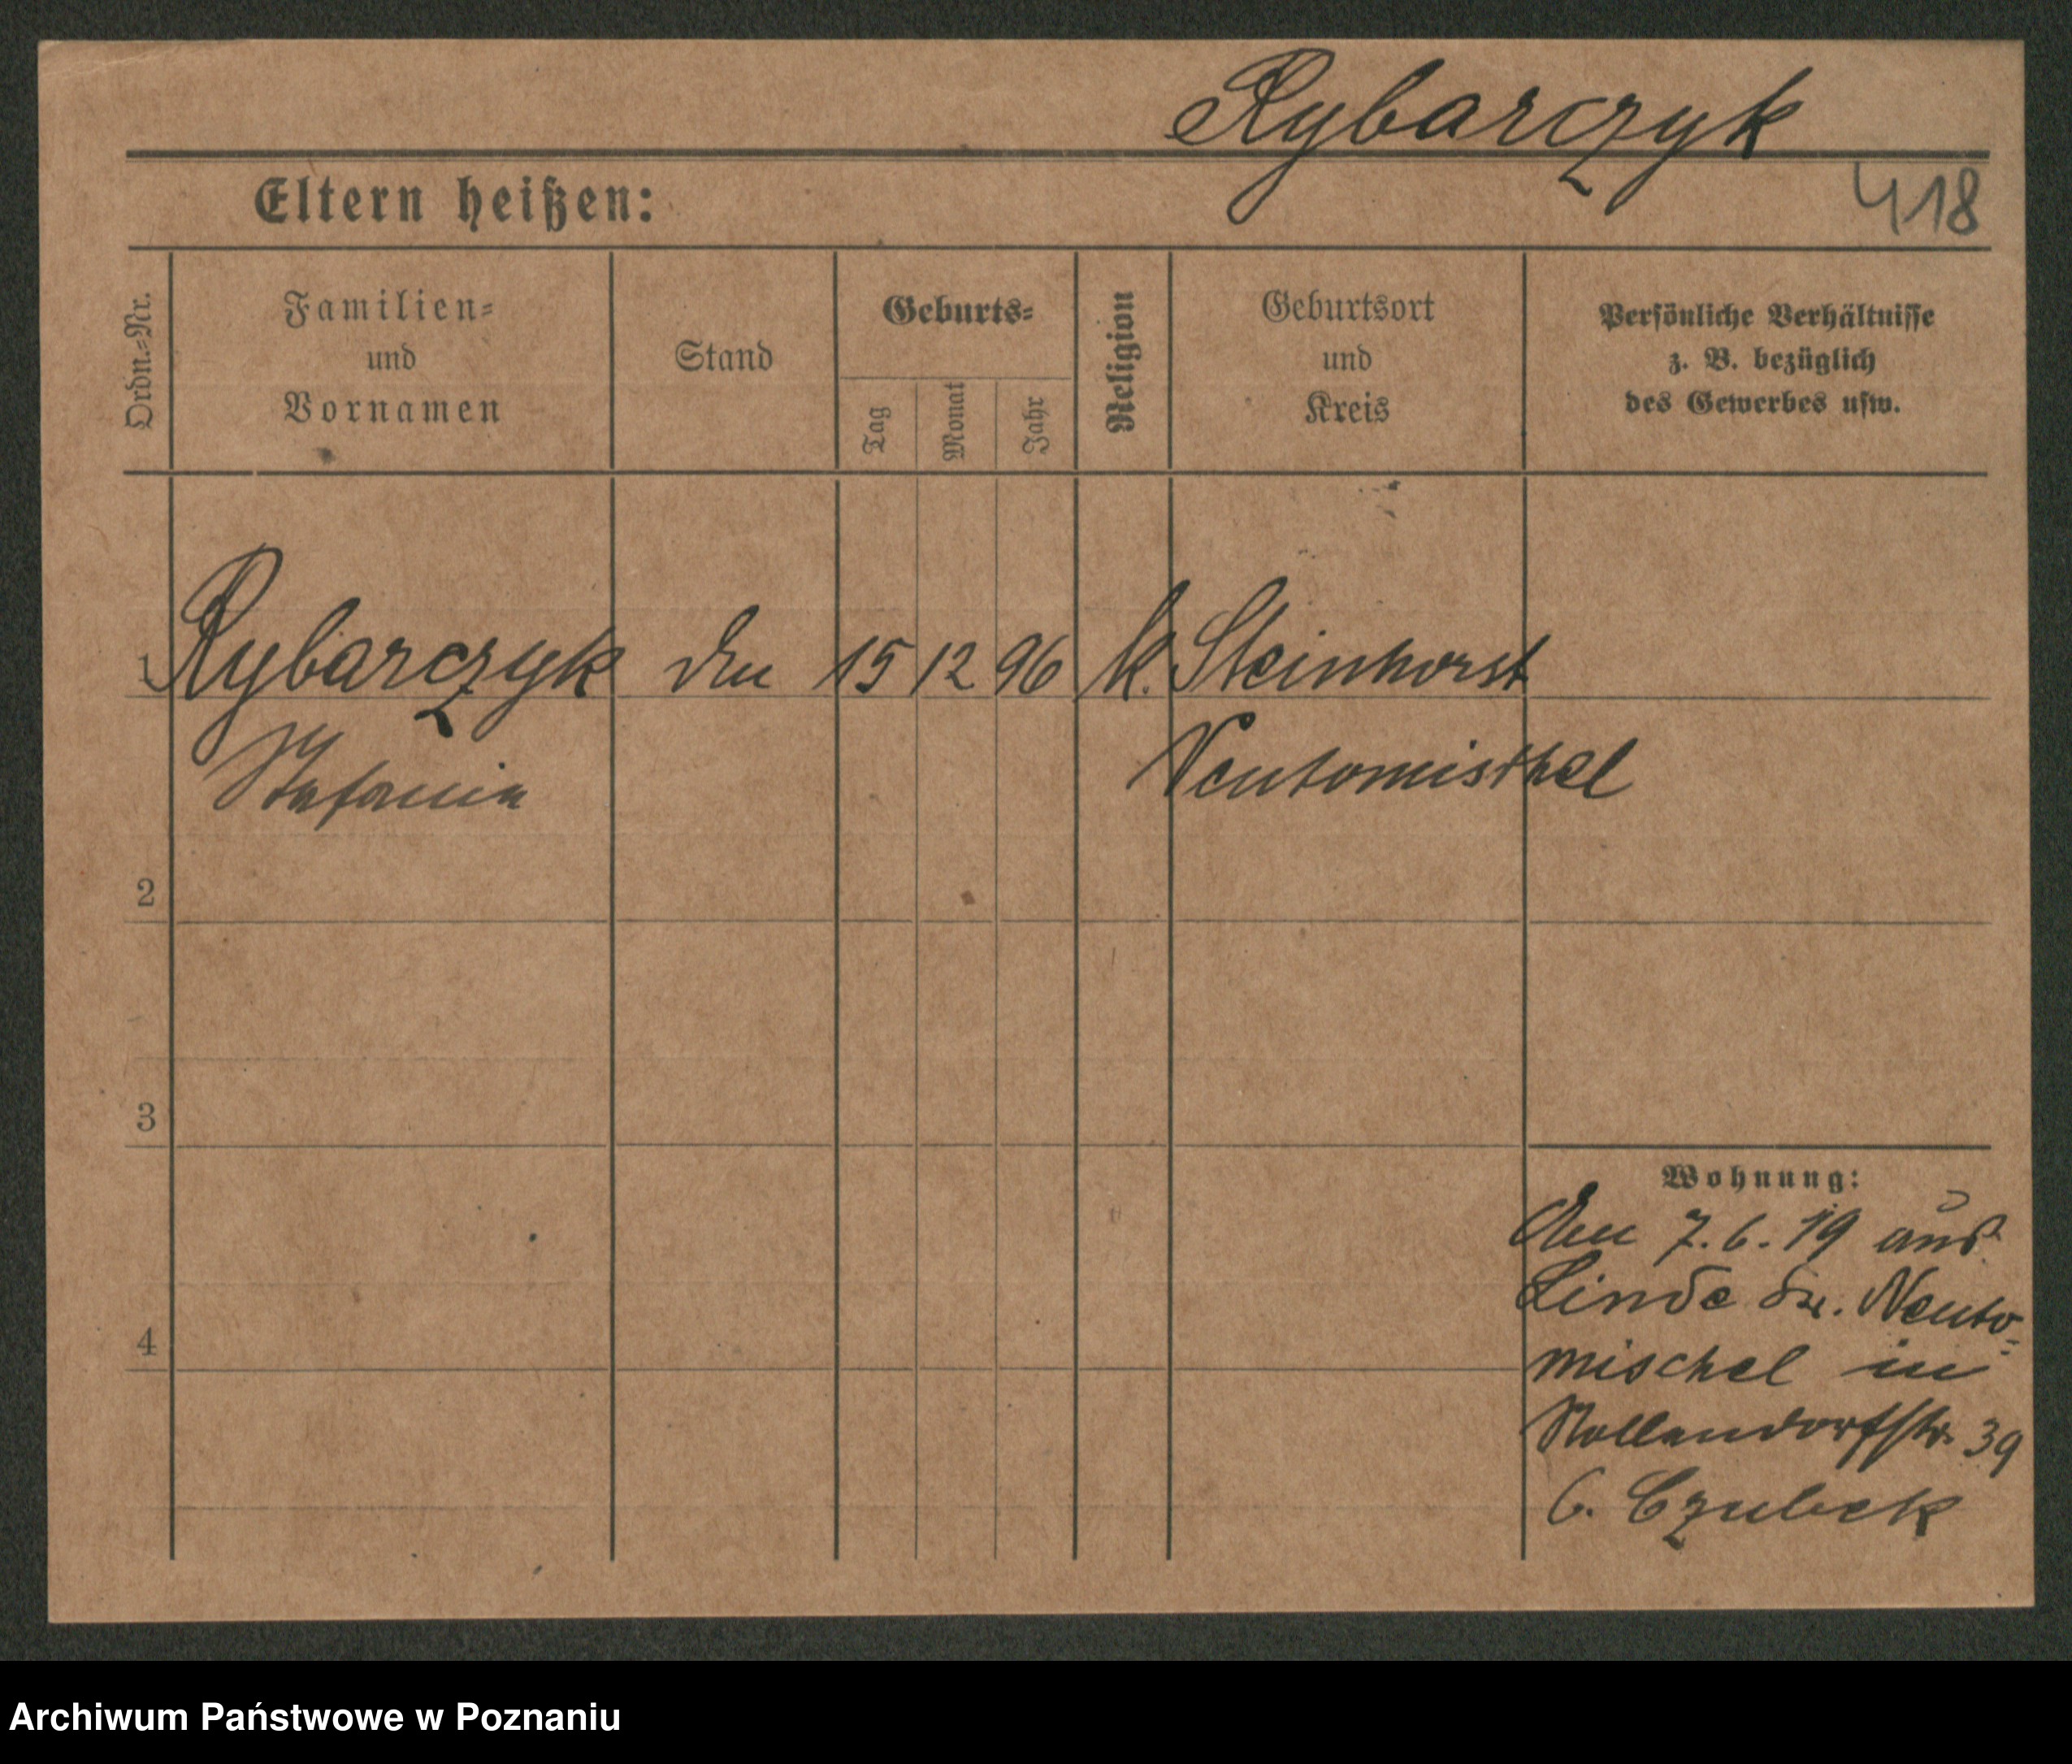 Rybarczyk
Eltern heißen:
418
Ordn.=Nr.
Familien=
und
Vornamen
Stand
Geburts=
Tag
Monat
Jahr
Religion
Geburtsort
und
Kreis
Persönliche Verhältnisse
z. B. bezüglich
des Gewerbes usw.
1 Rybarczyk 15 12 96 k. Steinhorst
Stefania Neutomisthel
2
3
4
Wohnung:
7.6.19 aus
Linde Neuto=
mischel in
Nollendorfstr. 39
b. Czubek
Archiwum Państwowe w Poznaniu